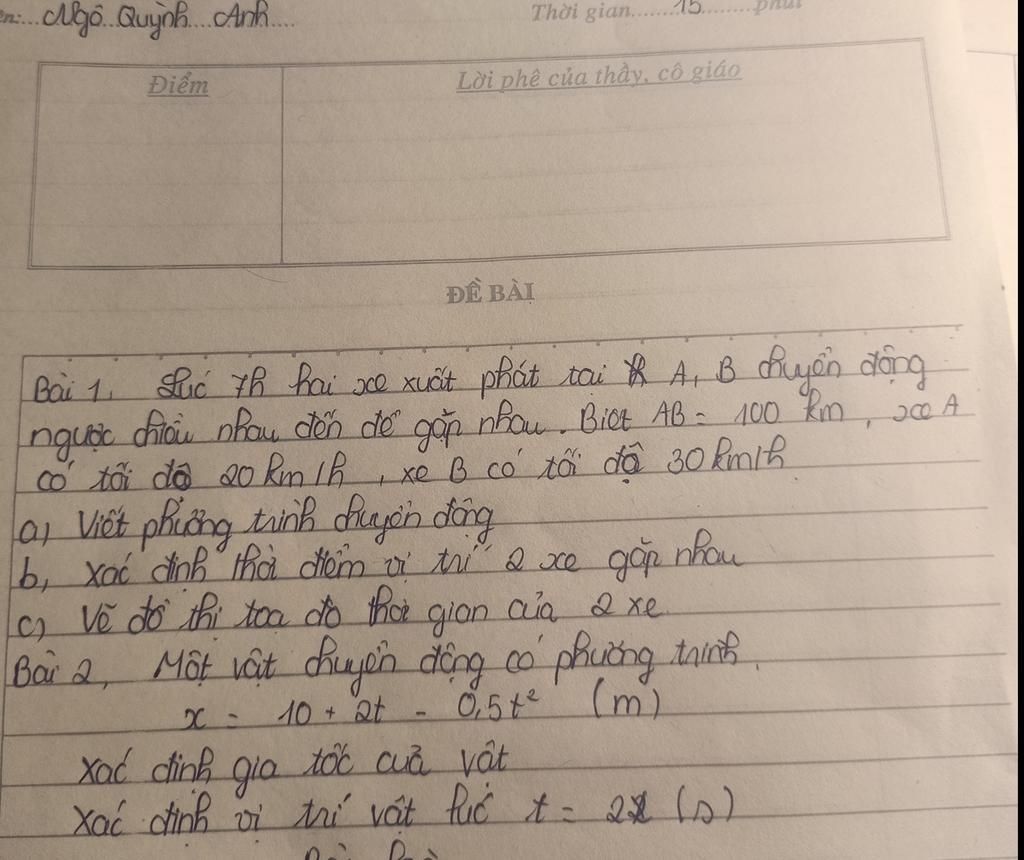 Ngô Quỳnh Anh
Thời gian........15........phút
Điểm
Lời phê của thầy, cô giáo
ĐỀ BÀI
Bài 1, Lúc 7h hai xe xuất phát tại A, B chuyển động
ngược chiều nhau đến để gặp nhau. Biết AB = 100 km, xe A
có tốc độ 20 km/h, xe B có tốc độ 30 km/h
a) Viết phương trình chuyển động
b, Xác định thời điểm vị trí 2 xe gặp nhau
c) Vẽ đồ thị tọa độ thời gian của 2 xe
Bài 2, Một vật chuyển động có phương trình.
x = 10 + 2t - 0,5t² (m)
Xác định gia tốc của vật
Xác định vị trí vật lúc t = 2 (s)